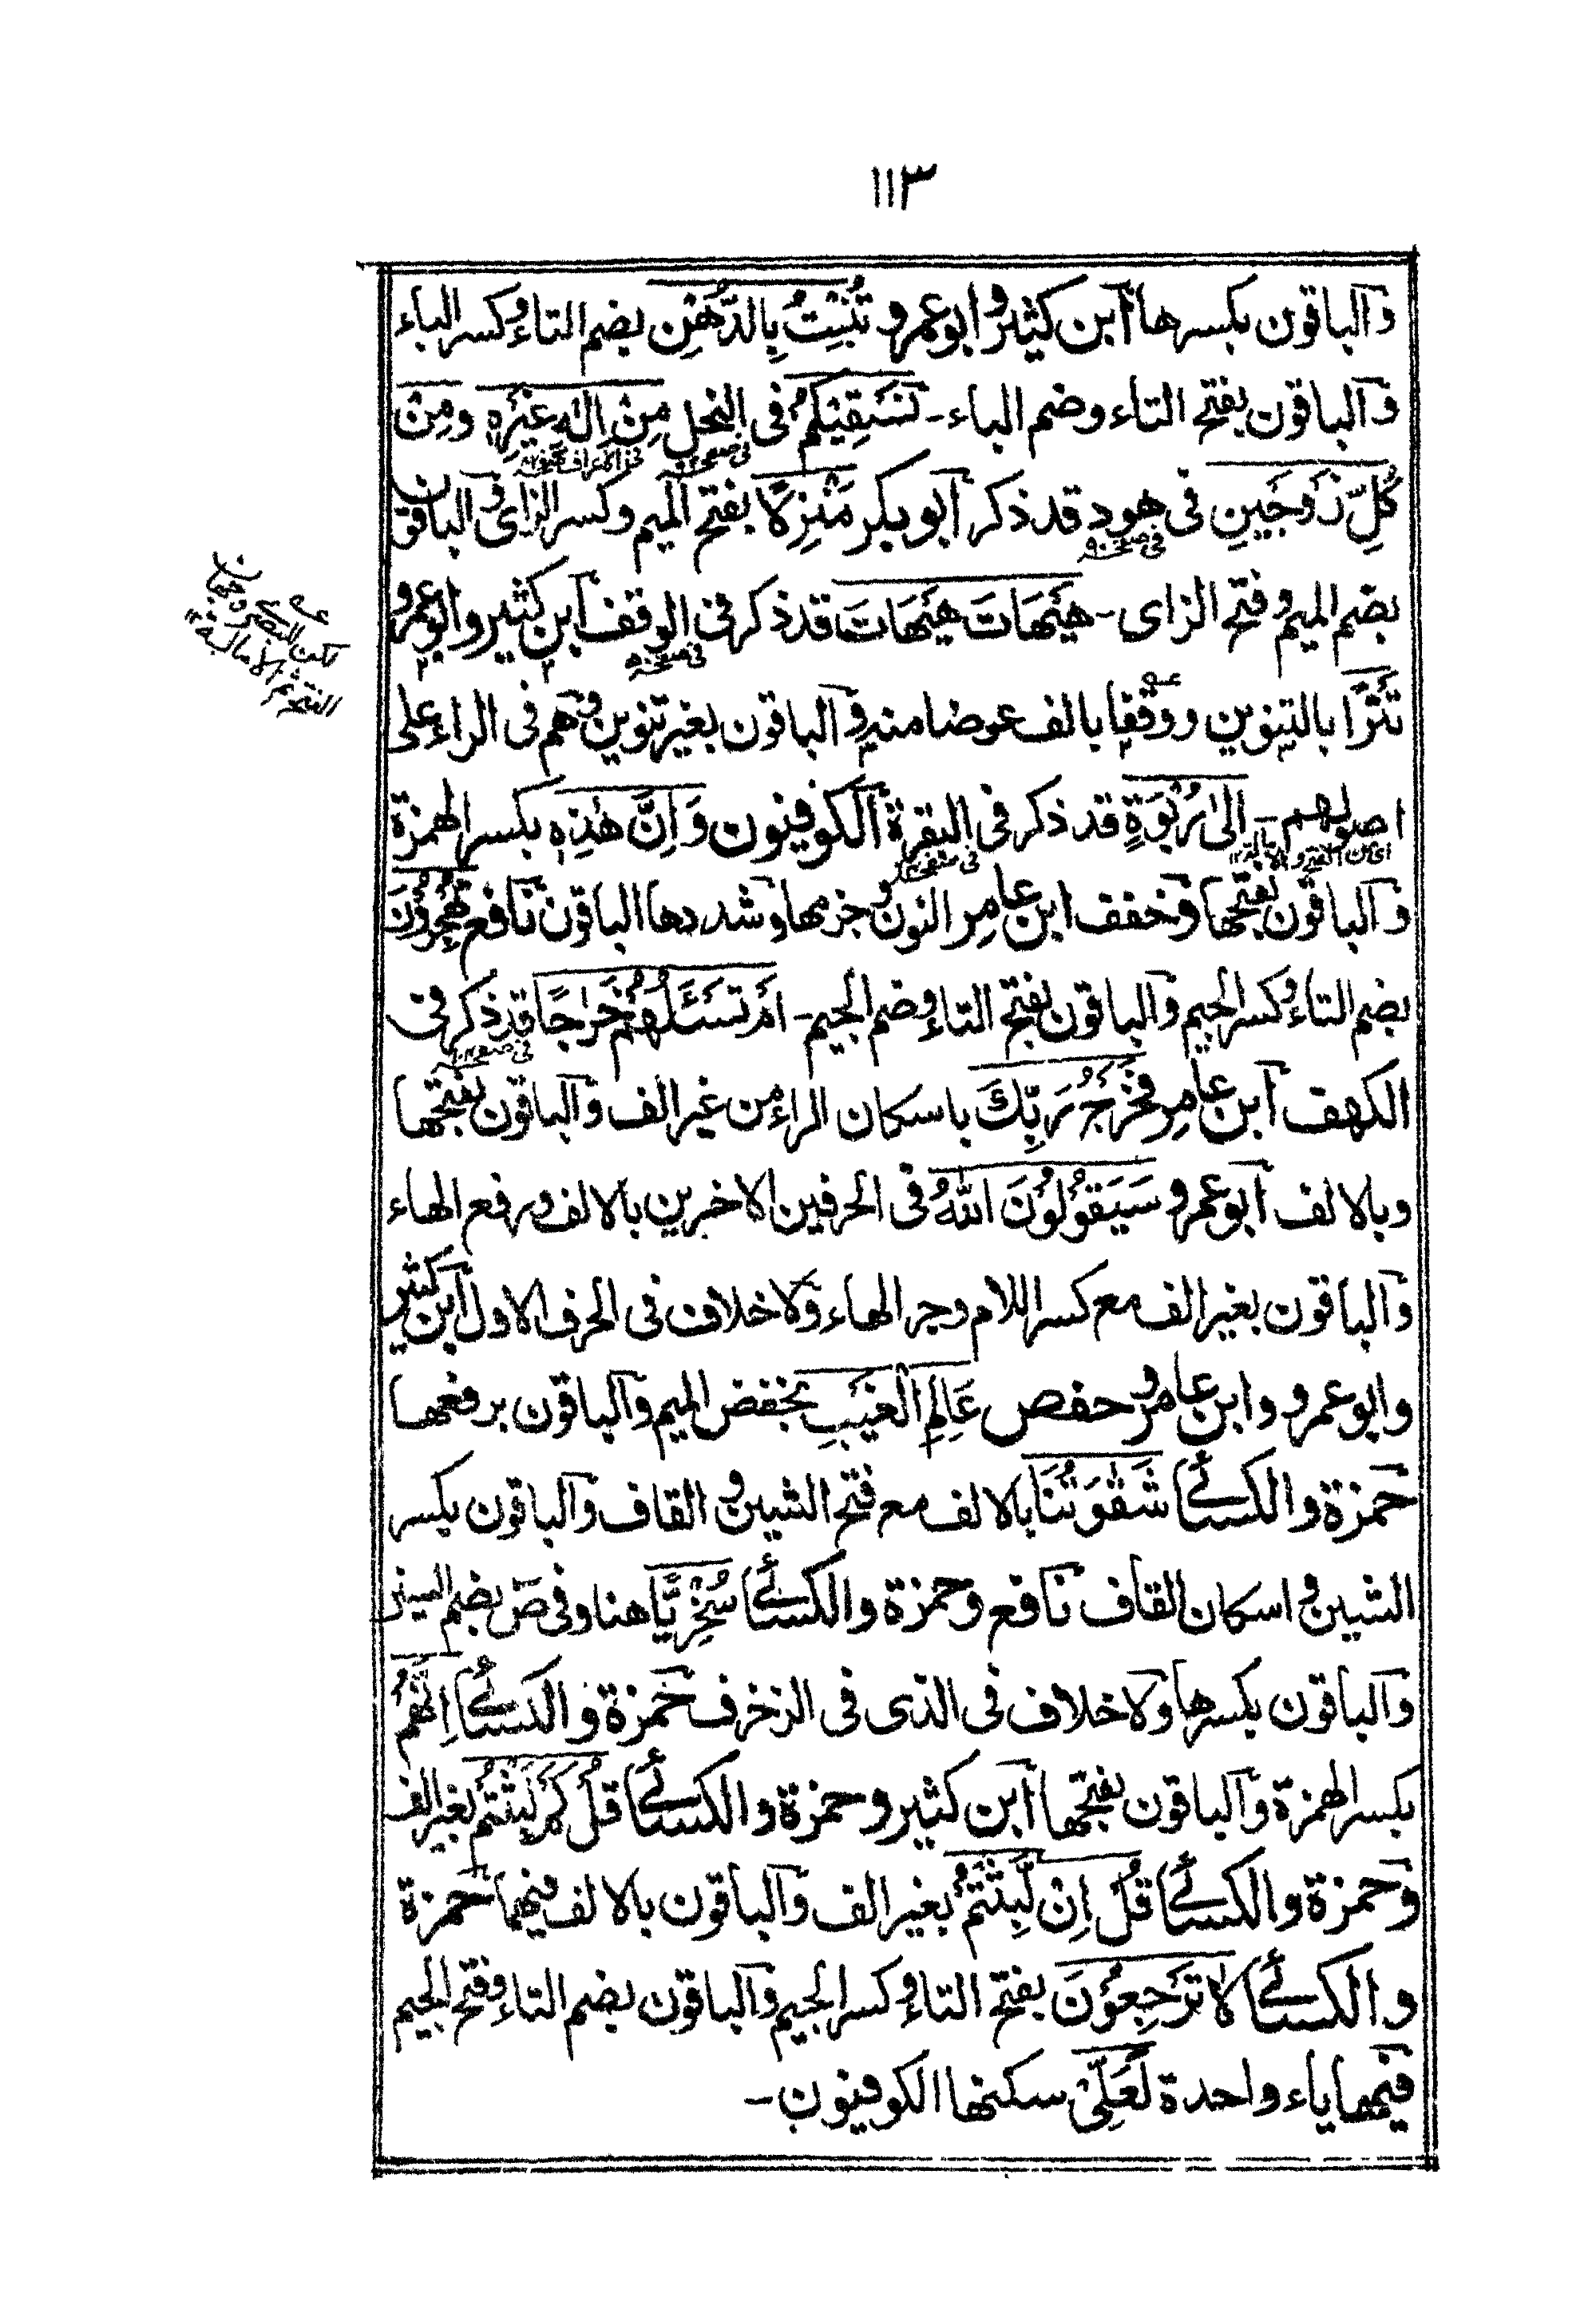 ١١٣
والباقون بكسرها ابن كثير وابو عمرو تُنْبِتُ بِالدُّهْنِ بضم التاء وكسر الباء
والباقون بفتح التاء وضم الباء ـ نُسْقِيْكُمْ فى النحل مِنْ اِلٰهٍ غَيْرِهٖ ومِنْ
كُلِّ زَوْجَيْنِ فى هود قد ذكر ابو بكر مَنْزِلًا بفتح الميم وكسر الزاى والباقون
فى صفحة ٩٠
بضم الميم وفتح الزاى ـ هَيْهَاتَ هَيْهَاتَ قد ذكر فى الوقف ابن كثير وابو عمرو
تَتْرًا بالتنوين ووقفا بالف عوضا منه والباقون بغير تنوين وهم فى الراء على
اصولهم ـ اِلىٰ رَبْوَةٍ قد ذكر فى البقرة الكوفيون وَاِنَّ هٰذِهٖ بكسر الهمزة
والباقون بفتحها وخفف ابن عامر النون وجزمها وشددها الباقون نافع تُهْجِرُوْنَ
بضم التاء وكسر الجيم والباقون بفتح التاء وضم الجيم ـ اَمْ تَسْـَٔلُهُمْ خَرْجًا قد ذكر فى
الكهف ابن عامر فَخَرْجُ رَبِّكَ باسكان الراء من غير الف والباقون بفتحها
وبالالف ابو عمرو سَيَقُوْلُوْنَ اللّٰهُ فى الحرفين الاخرين بالالف ورفع الهاء
والباقون بغير الف مع كسر اللام وجر الهاء ولا خلاف فى الحرف الاول ابن كثير
وابو عمرو وابن عامر وحفص عَالِمِ الْغَيْبِ بخفض الميم والباقون برفعها
حمزة والكسائى شَقٰوَتُنَا بالالف مع فتح الشين والقاف والباقون بكسر
الشين واسكان القاف نافع وحمزة والكسائى سُخْرِيًّا هنا وفى صٓ بضم السين
والباقون بكسرها ولا خلاف فى الذى فى الزخرف حمزة والكسائى اِنَّهُمْ
بكسر الهمزة والباقون بفتحها ابن كثير وحمزة والكسائى قُلْ كَمْ لَبِثْتُمْ بغير الف
وحمزة والكسائى قُلْ اِنْ لَّبِثْتُمْ بغير الف والباقون بالالف فيهما حمزة
والكسائى لَا تَرْجِعُوْنَ بفتح التاء وكسر الجيم والباقون بضم التاء وفتح الجيم
فيها ياء واحدة لَعَلِّىْ سكنها الكوفيون ـ